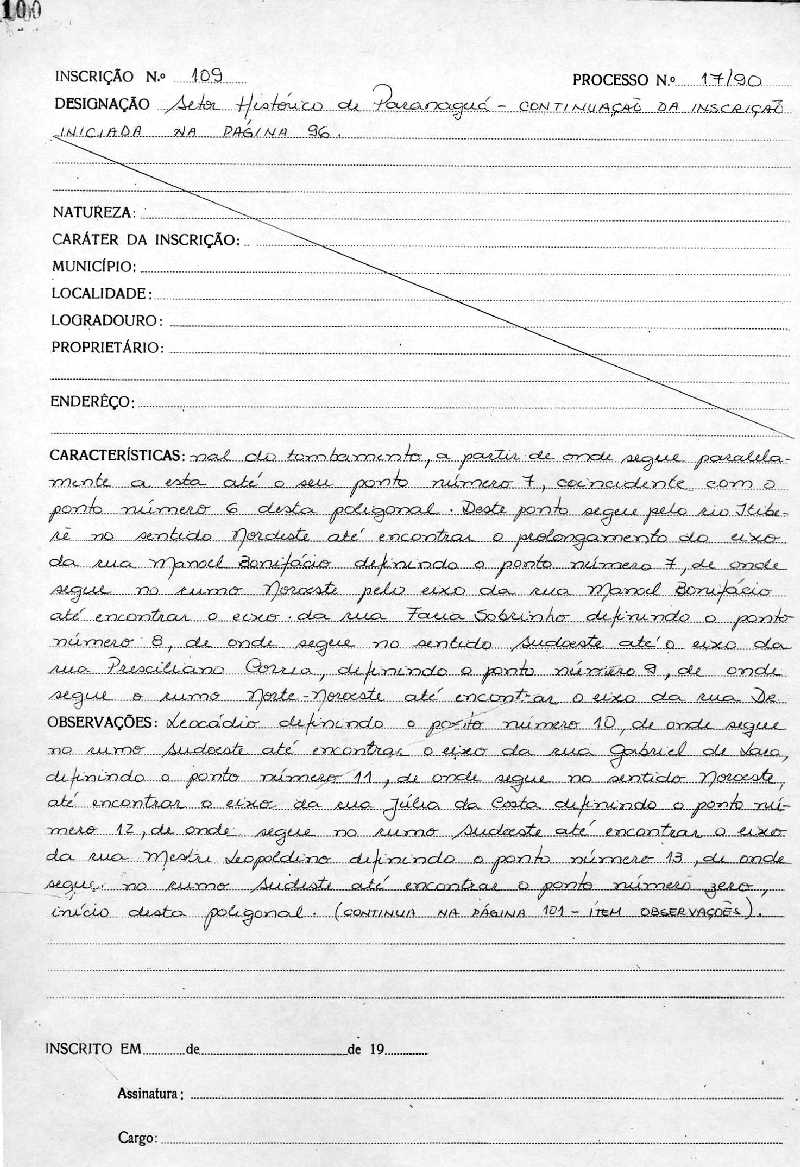 100
INSCRIÇÃO N.º 109 PROCESSO N.º 17/90
DESIGNAÇÃO Setor Histórico de Paranaguá - CONTINUAÇÃO DA INSCRIÇÃO
INICIADA NA PÁGINA 96.
NATUREZA:
CARÁTER DA INSCRIÇÃO:
MUNICÍPIO:
LOCALIDADE:
LOGRADOURO:
PROPRIETÁRIO:
ENDERÊÇO:
CARACTERÍSTICAS: nal do tombamento, a partir de onde segue paralela-
mente a esta até o seu ponto número 7, coincidente com o
ponto número 6 desta poligonal. Deste ponto segue pelo rio Itibe-
rê no sentido Nordeste até encontrar o prolongamento do eixo
da rua Manoel Bonifácio definindo o ponto número 7, de onde
segue no rumo Noroeste pelo eixo da rua Manoel Bonifácio
até encontrar o eixo da rua Faria Sobrinho definindo o ponto
número 8, de onde segue no sentido Sudoeste até o eixo da
rua Presciliano Correa, definindo o ponto número 9, de onde
segue o rumo Norte-Noroeste até encontrar o eixo da rua Dr
OBSERVAÇÕES: Leocádio definindo o ponto número 10, de onde segue
no rumo Sudoeste até encontrar o eixo da rua Gabriel de Lara,
definindo o ponto número 11, de onde segue no sentido Noroeste,
até encontrar o eixo da rua Júlia da Costa definindo o ponto nú-
mero 12, de onde segue no rumo Sudoeste até encontrar o eixo
da rua Mestre Leopoldino definindo o ponto número 13, de onde
segue no rumo Sudeste até encontrar o ponto número zero,
início desta poligonal. (CONTINUA NA PÁGINA 101 - ÍTEM OBSERVAÇÕES).
INSCRITO EM de de 19
Assinatura:
Cargo: